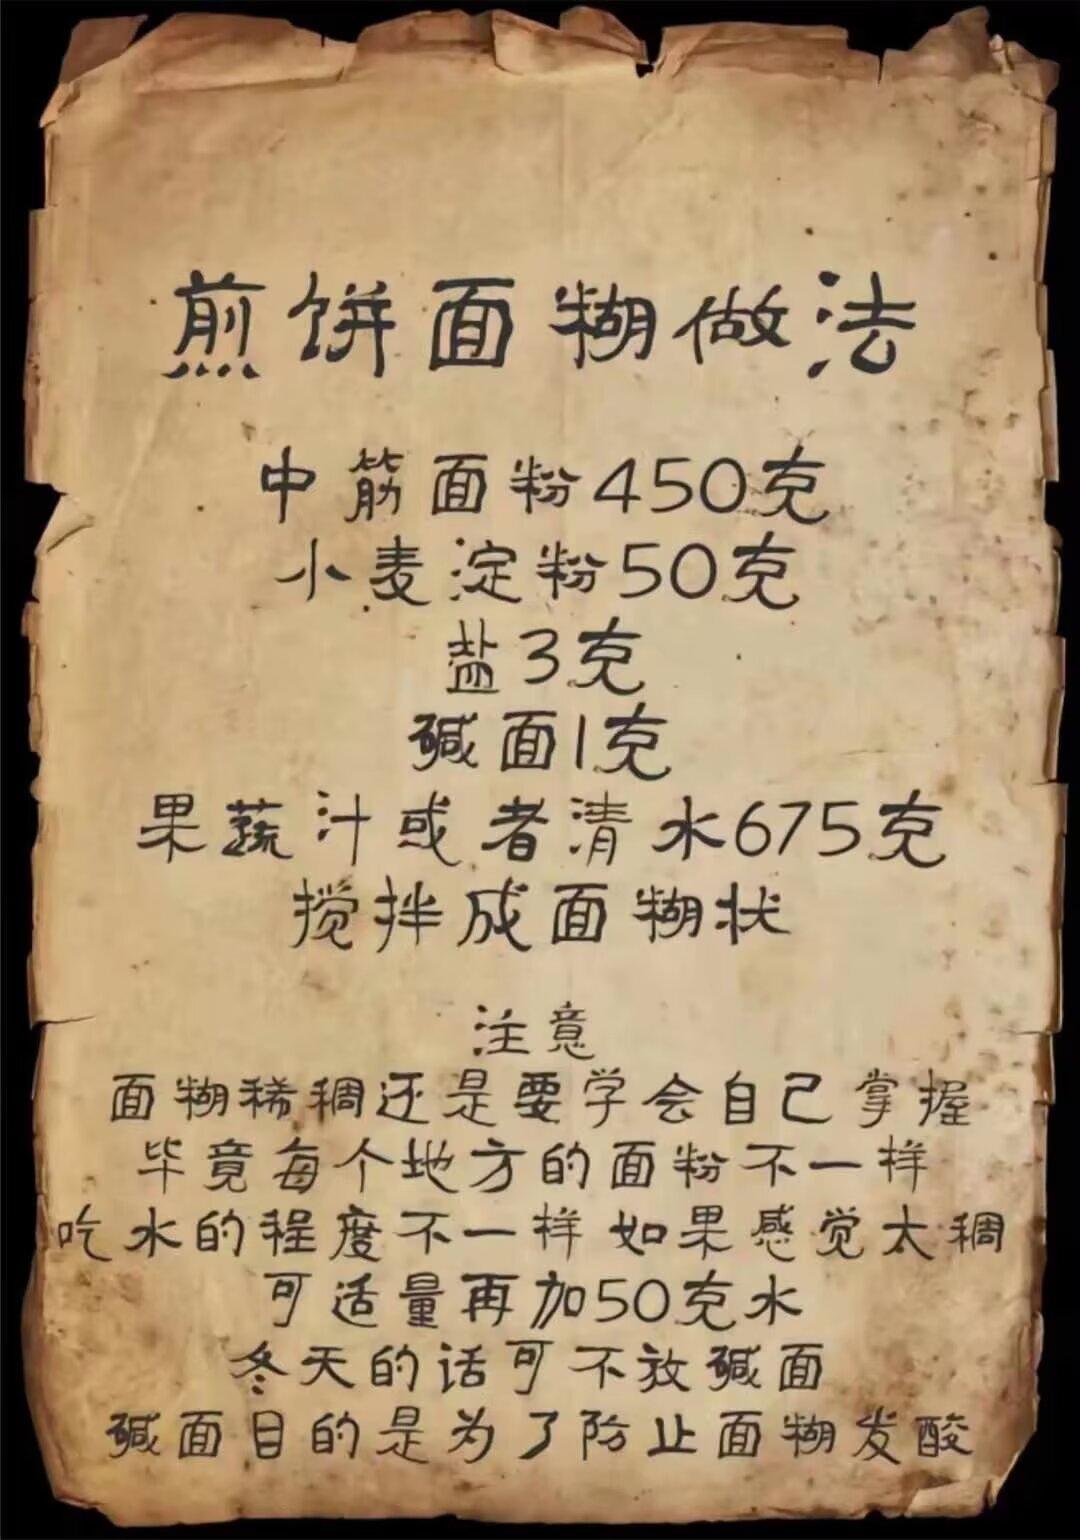 煎饼面糊做法
中筋面粉450克
小麦淀粉50克
盐3克
碱面1克
果蔬汁或者清水675克
搅拌成面糊状
注意
面糊稀稠还是要学会自己掌握
毕竟每个地方的面粉不一样
吃水的程度不一样如果感觉太稠
可适量再加50克水
冬天的话可不放碱面
碱面目的是为了防止面糊发酸